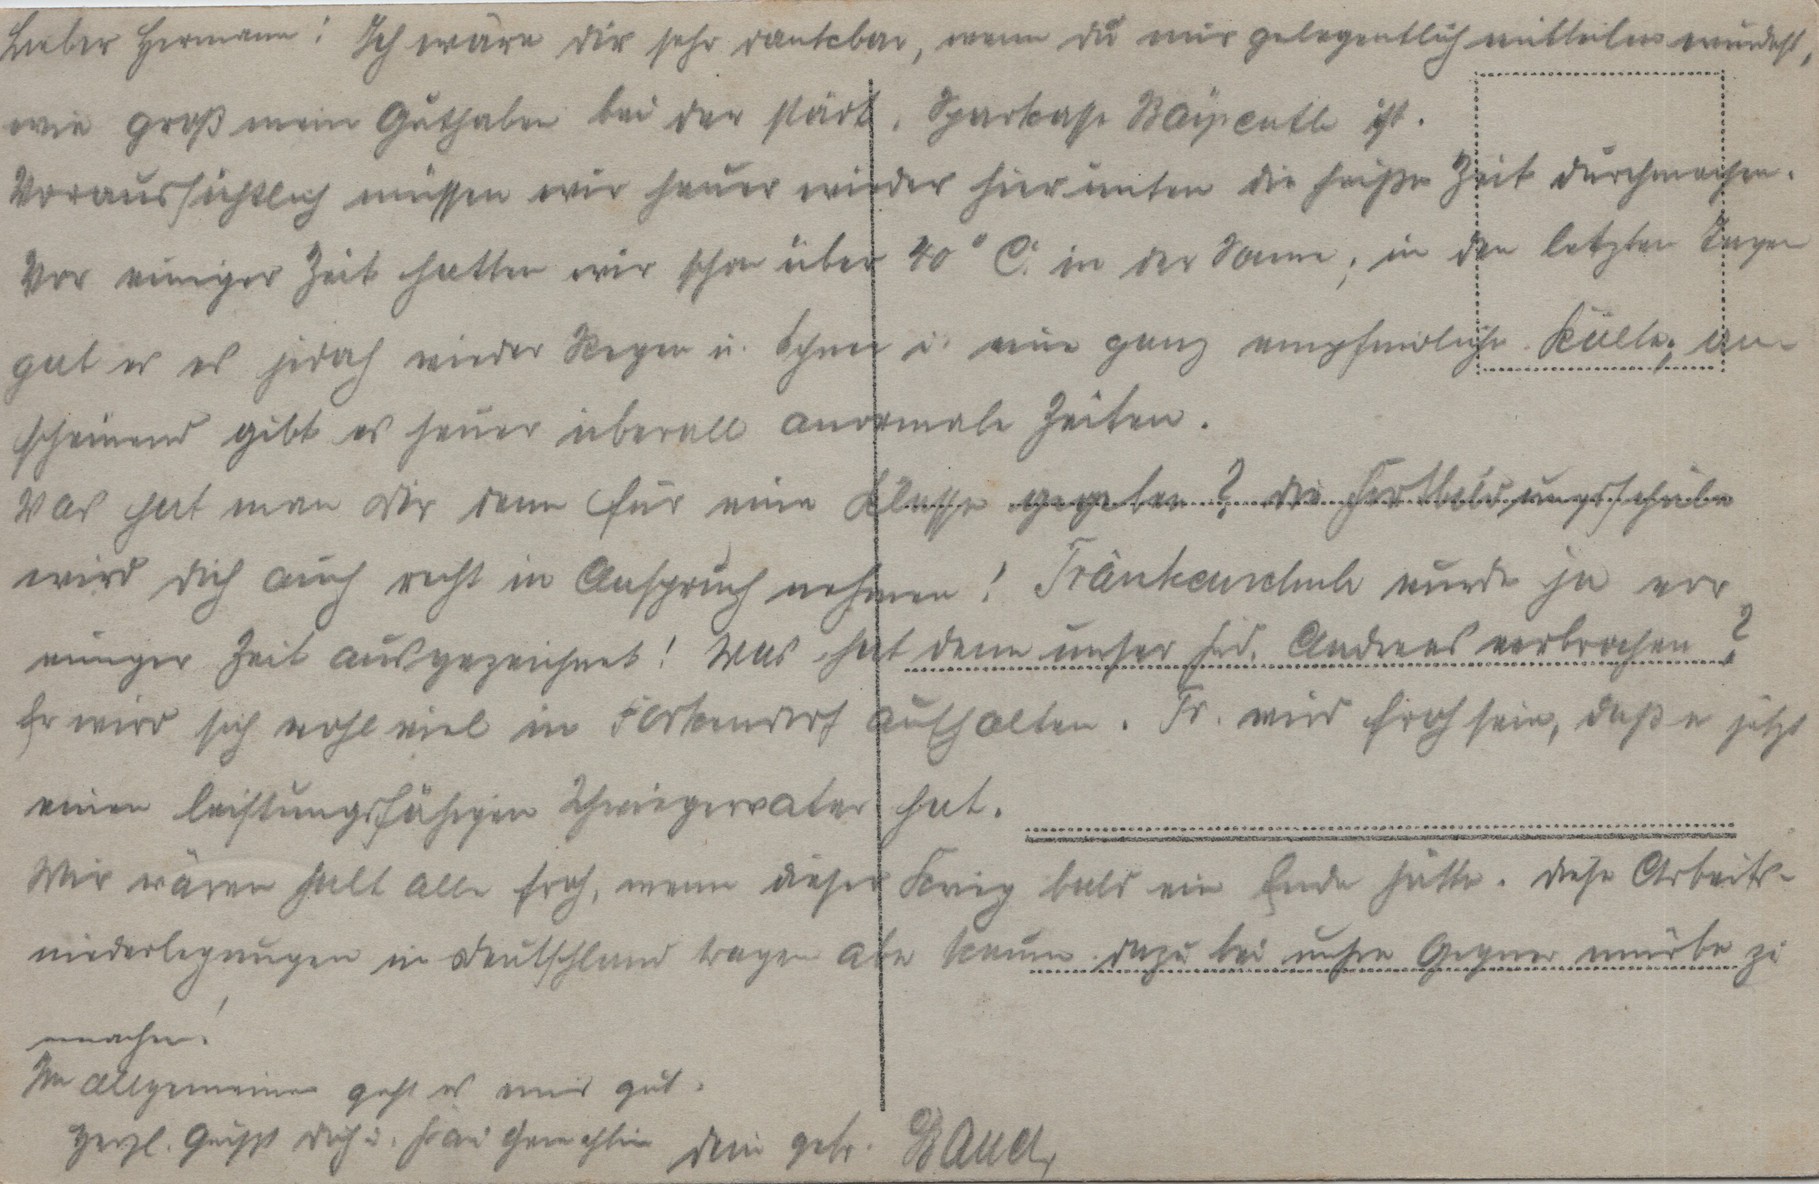 Lieber Hermann! Ich wäre dir sehr dankbar, wenn du mir gelegentlich mitteilen würdest,
wie groß mein Guthaben bei der städt. Sparkasse Bayreuth ist.
Voraussichtlich müssen wir heuer wieder hier unten die heiße Zeit durchmachen.
Vor einiger Zeit hatten wir schon über 40° C. in der Sonne; in den letzten Tagen
gab es jedoch wieder Regen u. Schnee u. eine ganz empfindliche Kälte; an-
scheinend gibt es heuer überall anormale Zeiten.
Was hat man dir denn für eine Klasse gegeben? die Fortbildungsschule
wird dich auch recht in Anspruch nehmen! wurde ja vor
einiger Zeit ausgezeichnet! Was hat denn unser Andreas verbrochen?
Er wird sich wohl viel in aufhalten. Fr. wird froh sein, daß er jetzt
einen leistungsfähigen Schwiegervater hat.
Wir wären halt alle froh, wenn dieser Krieg bald ein Ende hätte. diese Arbeits-
niederlegungen in Deutschland tragen aber kaum dazu bei unsre Gegner mürbe zu
machen!
Im allgemeinen geht es mir gut.
Herzl. Grüßt dich u. Frau Gemahlin dein getr.